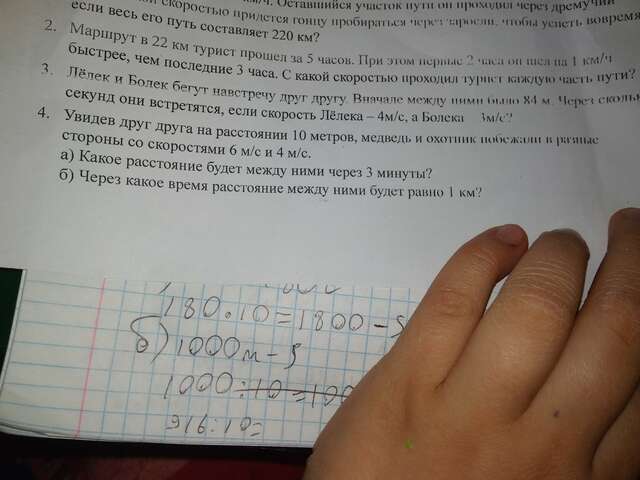 скоростью придется гонцу пробираться через заросли, чтобы успеть вовремя,
если весь его путь составляет 220 км?
2. Маршрут в 22 км турист прошел за 5 часов. При этом первые 2 часа он шел на 1 км/ч
быстрее, чем последние 3 часа. С какой скоростью проходил турист каждую часть пути?
3. Лёлек и Болек бегут навстречу друг другу. Вначале между ними было 84 м. Через сколько
секунд они встретятся, если скорость Лёлека – 4м/с, а Болека 3м/с?
4. Увидев друг друга на расстоянии 10 метров, медведь и охотник побежали в разные
стороны со скоростями 6 м/с и 4 м/с.
а) Какое расстояние будет между ними через 3 минуты?
б) Через какое время расстояние между ними будет равно 1 км?
180.10=1800-S
б) 1000м-S
1000:10=100
916:10=